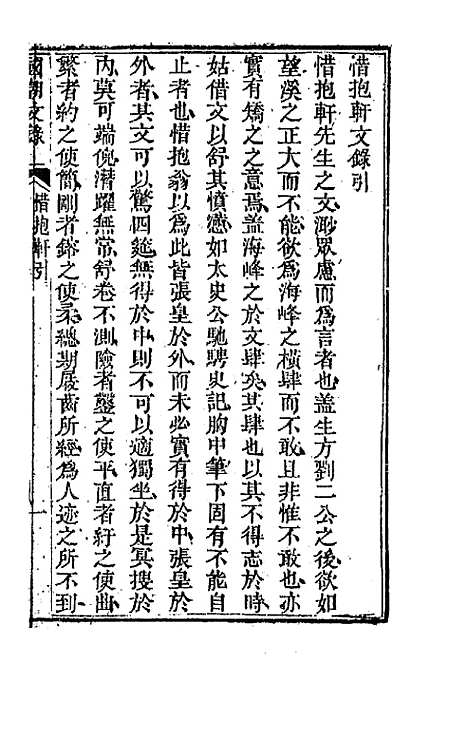 惜抱軒文錄引
惜抱軒先生之文澂眾慮而爲言者也蓋生方劉二公之後欲如
望溪之正大而不能欲爲海峰之橫肆而不敢且非惟不敢也亦
實有矯之之意焉蓋海峰之於文肆矣其肆也以其不得志於時
姑借文以舒其憤懣如太史公馳騁史記胸中筆下固有不能自
止者也惜抱翁以爲此皆張皇於外而未必實有得於中張皇於
外者其文可以驚四筵無得於中則不可以適獨坐於是冥搜於
內莫可端倪潛躍無常舒卷不測險者鑿之使平直者紆之使曲
繁者約之使簡剛者鎔之使柔總期屐齒所經爲人迹之所不到
國朝文錄 惜抱軒引 一